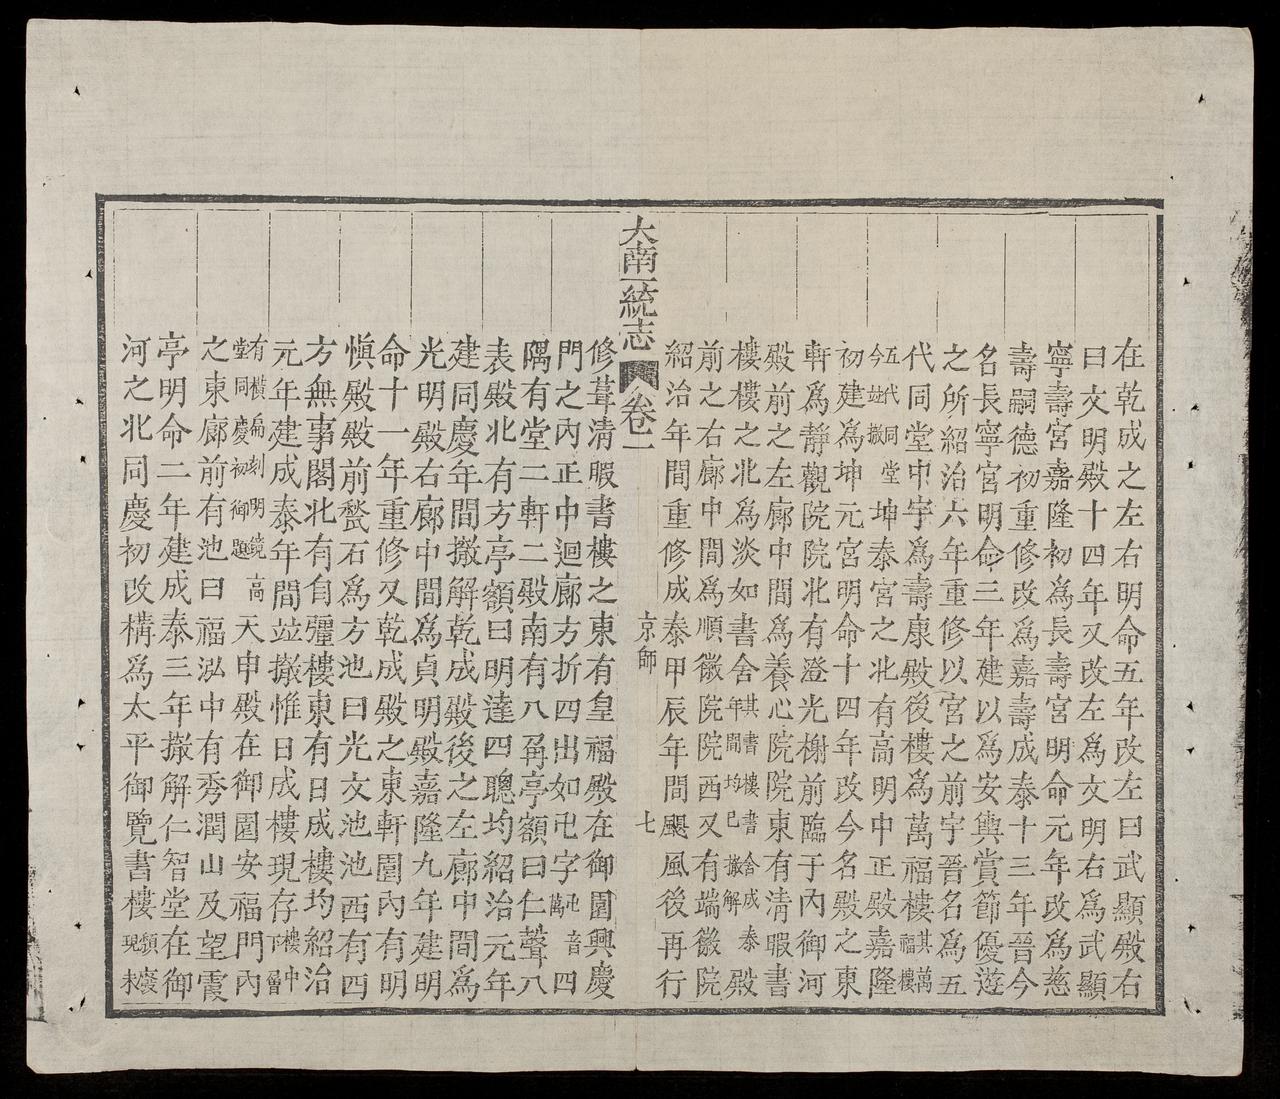 在乾成之左右明命五年改左曰武顯殿右
曰文明殿十四年又改左爲文明右爲武顯
寧壽宮嘉隆初爲長壽宮明命元年改爲慈
壽嗣德初重修改爲嘉壽成泰十三年晉今
名長寧宮明命三年建以爲安輿賞節優遊
之所紹治六年重修以宮之前宇晉名爲五
代同堂中宇爲壽康殿後樓爲萬福樓其萬福樓
五代同堂今竝撤坤泰宮之北有高明中正殿嘉隆
初建爲坤元宮明命十四年改今名殿之東
軒爲靜觀院院北有澄光榭前臨于內御河
殿前之左廊中間爲養心院院東有清暇書
樓樓之北爲淡如書舍其書樓書舍成泰年間均已撤解殿
前之右廊中間爲順徽院院西又有端徽院
紹治年間重修成泰甲辰年間颶風後再行
大南一統志 卷一 京師 七
修葺清暇書樓之東有皇福殿在御園興慶
門之內正中迴廊方折四出如卍字卍音萬四
隅有堂二軒二殿南有八角亭額曰仁聲八
表殿北有方亭額曰明達四聰均紹治元年
建同慶年間撤解乾成殿後之左廊中間爲
光明殿右廊中間爲貞明殿嘉隆九年建明
命十一年重修又乾成殿之東軒園內有明
愼殿殿前甃石爲方池曰光文池池西有四
方無事閣北有自彊樓東有日成樓均紹治
元年建成泰年間竝撤惟日成樓現存樓中下層
有橫扁刻明鏡高堂同慶初御題天申殿在御園安福門內
之東廊前有池曰福泓中有秀潤山及望霞
亭明命二年建成泰三年撤解仁智堂在御
河之北同慶初改構爲太平御覽書樓頹廢現未